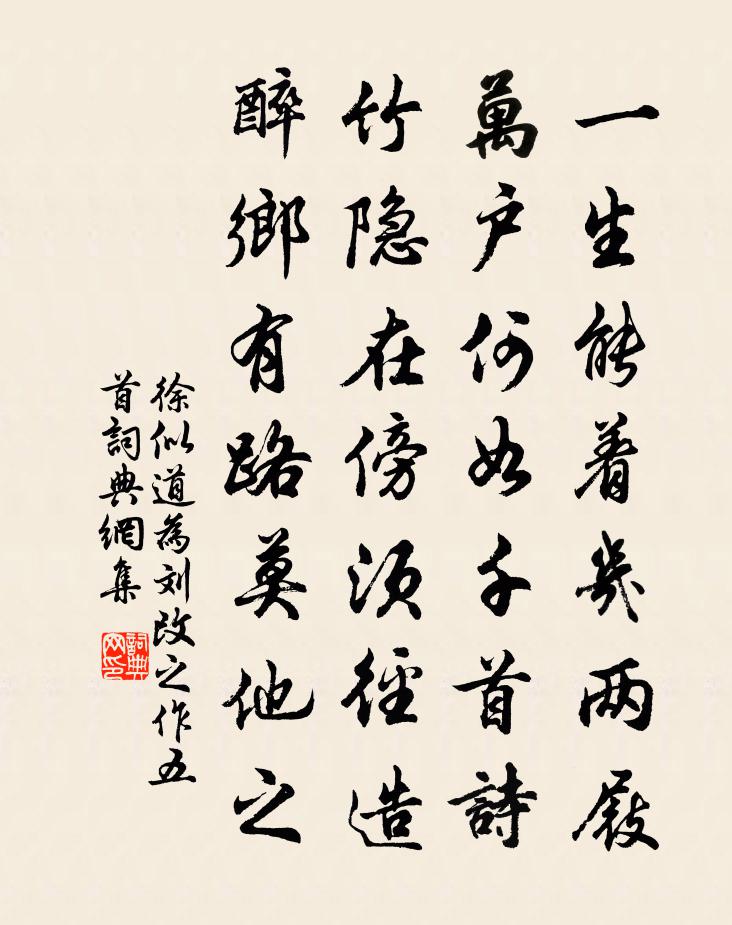 一生能着幾两屐
萬户何如千首詩
竹隐在傍須徑造
醉鄉有路莫他之
徐似道為刘改之作五
首詞典網集
詞典
网印